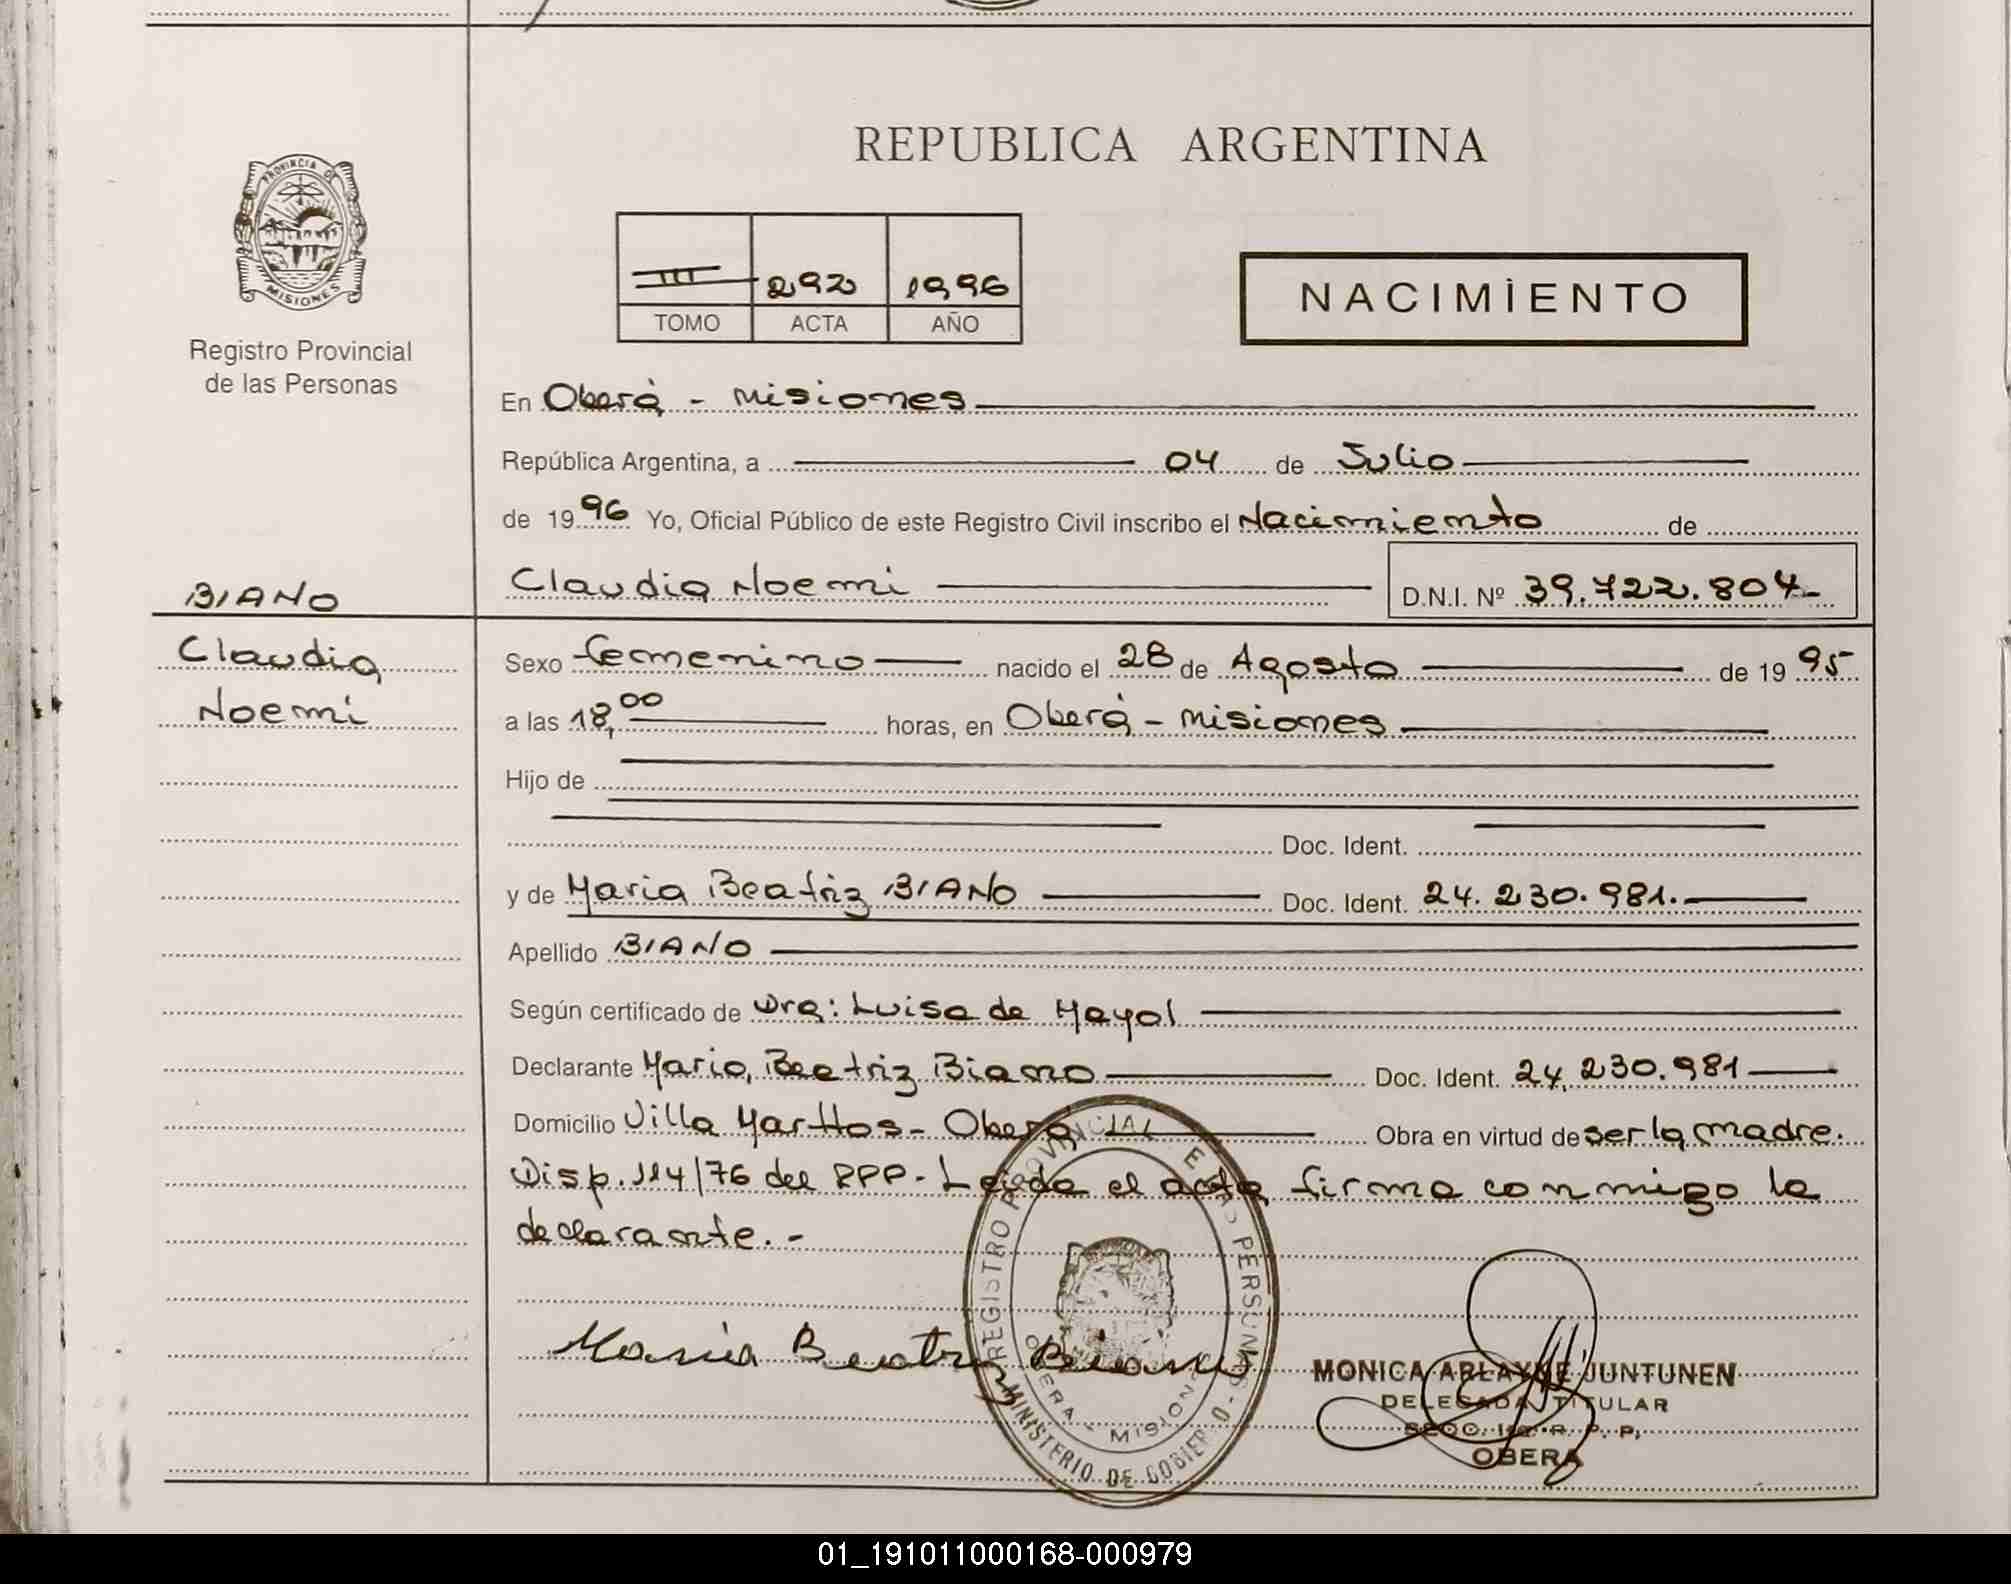 REPUBLICA ARGENTINA
PROVINCIA DE
MISIONES
Registro Provincial
de las Personas
III 292 1996
TOMO ACTA AÑO
NACIMIENTO
En Oberá - Misiones
República Argentina, a 04 de Julio
de 1996 Yo, Oficial Público de este Registro Civil inscribo el Nacimiento de
Claudia Noemi D.N.I. Nº 39.722.804-
BIANO
Claudia
Noemi
Sexo femenino nacido el 28 de Agosto de 1995
a las 18,00 horas, en Oberá - Misiones
Hijo de
Doc. Ident.
y de Maria Beatriz BIANO Doc. Ident. 24.230.981.
Apellido BIANO
Según certificado de Dra: Luisa de Mayol
Declarante Maria Beatriz Biano Doc. Ident. 24.230.981
Domicilio Villa Marttos - Oberá Obra en virtud de ser la madre.
Disp. 114/76 del RPP - Leida el acta firma conmigo la
declarante.-
Maria Beatriz Biano
REGISTRO PROVINCIAL DE LAS PERSONAS - MINISTERIO DE GOBIERNO
OBERA - MISIONES
MONICA ARLAYNE JUNTUNEN
DELEGADA TITULAR
SECC. 1ra. R. P. P.
OBERA
01_191011000168-000979